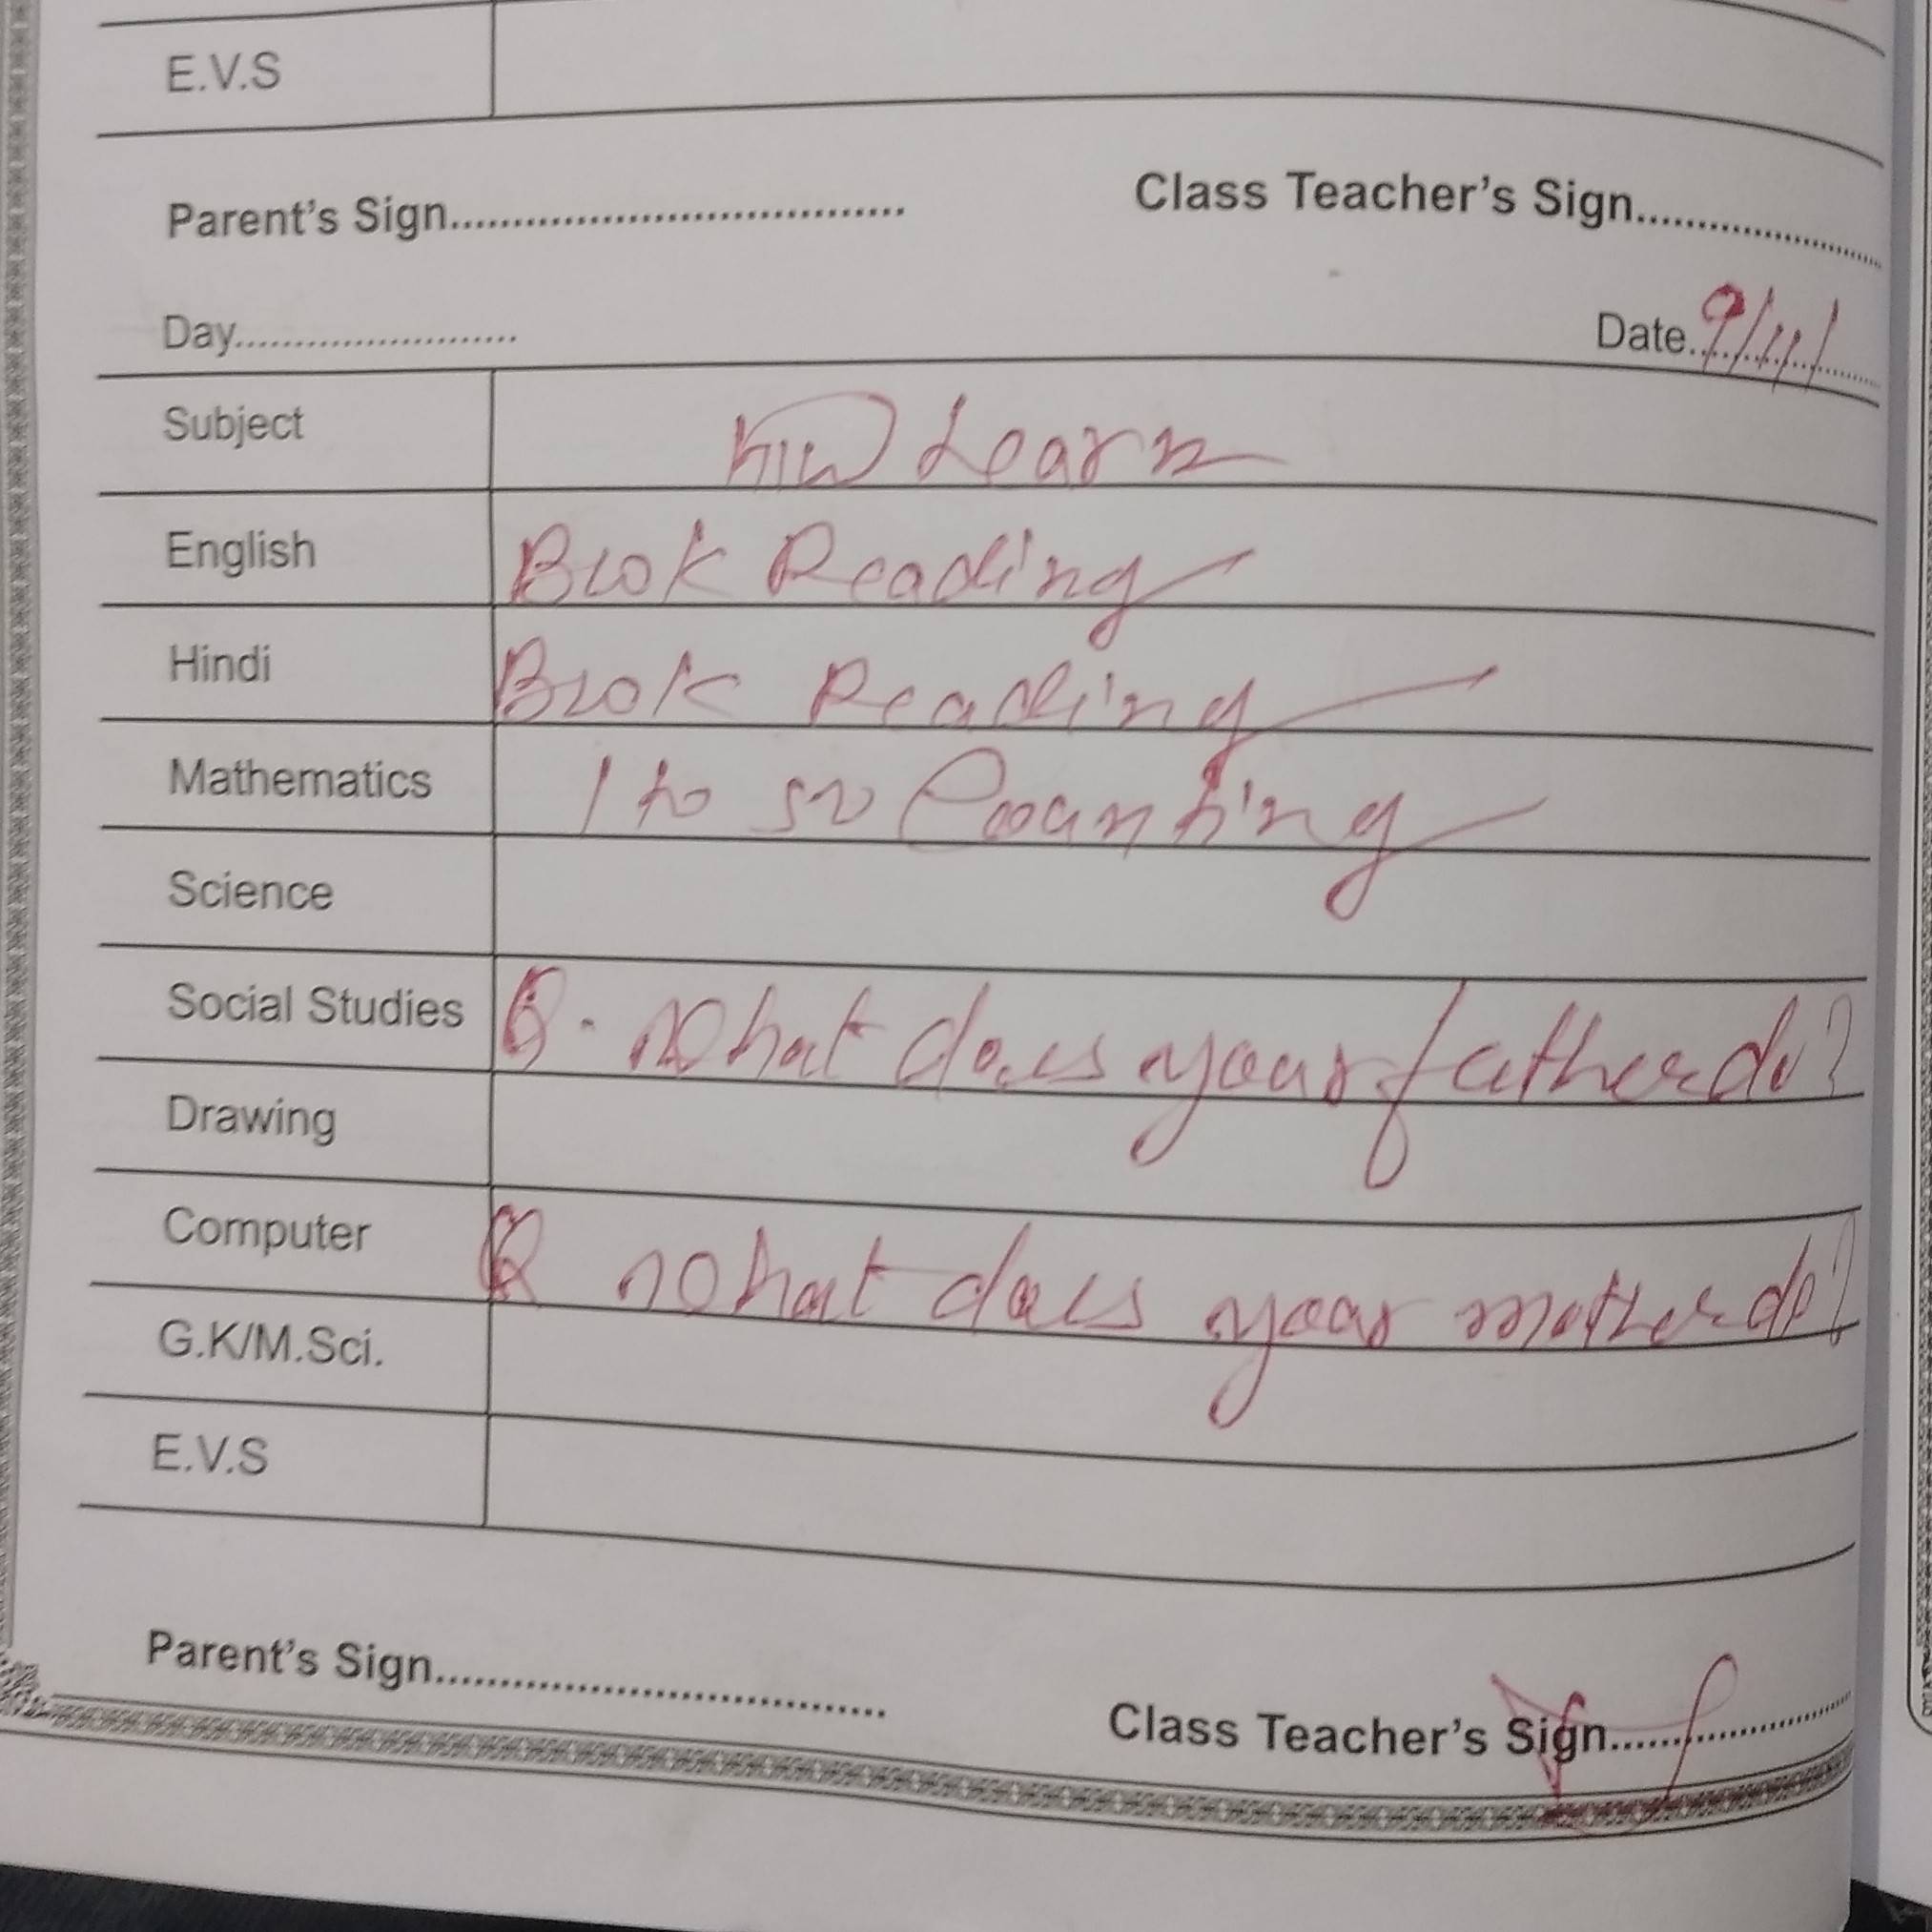 E.V.S
Parent's Sign.................................... Class Teacher's Sign....................
Day........................ Date 9/11/
Subject H/W Learn
English Book Reading
Hindi Book Reading
Mathematics 1 to 50 Counting
Science
Social Studies Q. What does your father do?
Drawing
Computer Q What does your mother do?
G.K/M.Sci.
E.V.S
Parent's Sign.................................... Class Teacher's Sign....................